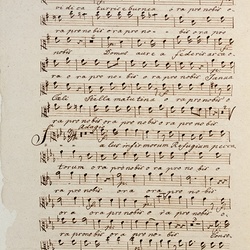 ri de ca turris eburnea o ra pro nobis o
ra pro nobis ora pro no bis ora pro
nobis Domus aure a federis
o ra pro nobis ora pro nobis Janua
Cœli Stella matutina o ra pro nobis o
ra pro nobis ora pro nobis ora pro nobis
Adagio
alus infirmorum Refugium pecca
torum o ra pro nobis ora pro nobis o
ra pro nobis ora ora pro nobis
or ora ora pro nobis o ra pro nobis o
ra pro nobis ora pro nobis Conso